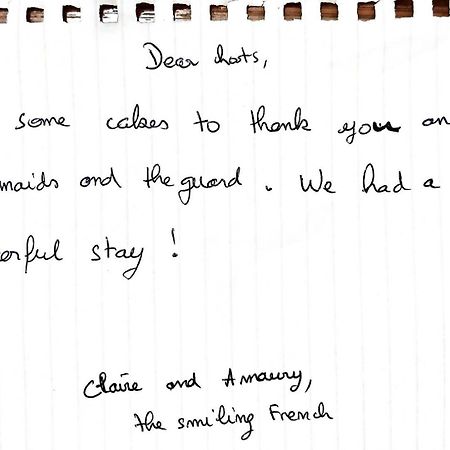 Dear hosts,
some cakes to thank you an
maids and the guard. We had a
erful stay!
Claire and Amaury,
the smiling French